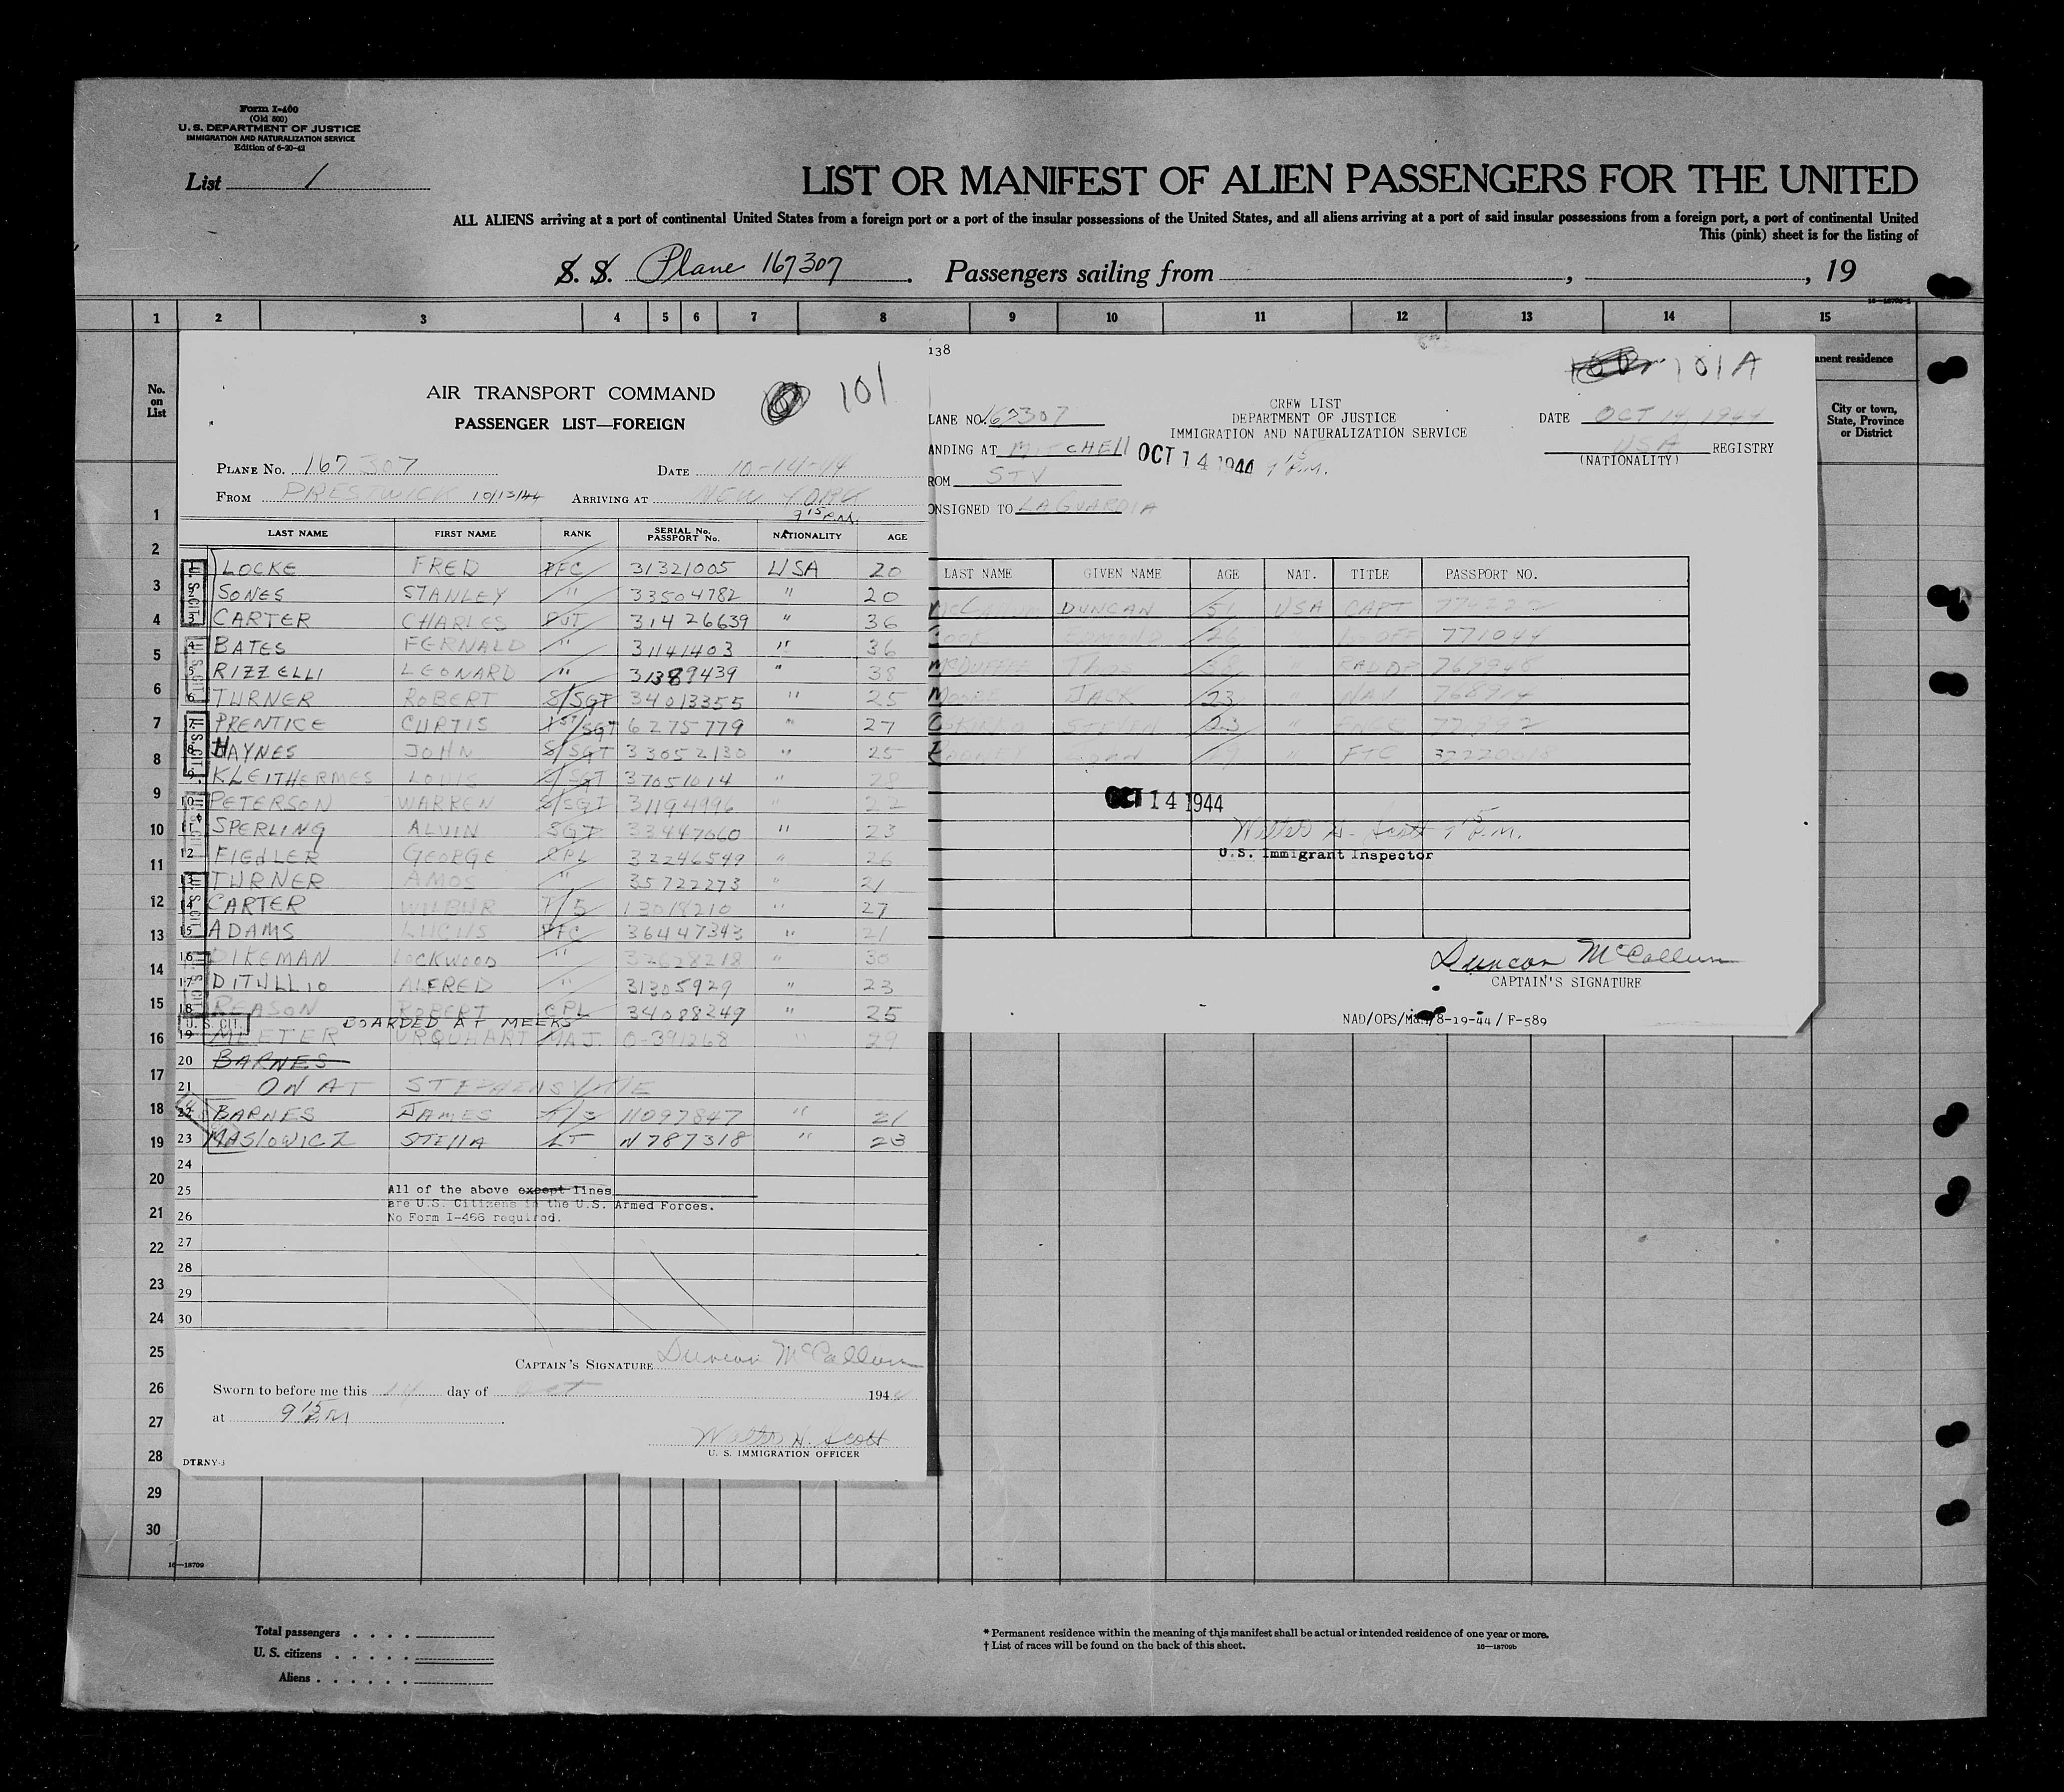 Form I-460
(Old 500)
U. S. DEPARTMENT OF JUSTICE
IMMIGRATION AND NATURALIZATION SERVICE
Edition of 6-20-42
List 1
LIST OR MANIFEST OF ALIEN PASSENGERS FOR THE UNITED
ALL ALIENS arriving at a port of continental United States from a foreign port or a port of the insular possessions of the United States, and all aliens arriving at a port of said insular possessions from a foreign port, a port of continental United
This (pink) sheet is for the listing of
S. S. Plane 167307 . Passengers sailing from , , 19
1 2 3 4 5 6 7 8 9 10 11 12 13 14 15
No. on List
AIR TRANSPORT COMMAND
101
PASSENGER LIST—FOREIGN
PLANE No. 167307 DATE 10-14-44
FROM PRESTWICK 10/13/44 ARRIVING AT NEW YORK
9 15 P.M.
LAST NAME FIRST NAME RANK SERIAL No. PASSPORT No. NATIONALITY AGE
1 LOCKE FRED PFC 31321005 USA 20
2 SONES STANLEY " 33504782 " 20
3 CARTER CHARLES PVT 31426639 " 36
4 BATES FERNALD " 31141403 " 36
5 RIZZELLI LEONARD " 31389439 " 38
6 TURNER ROBERT S/SGT 34013355 " 25
7 PRENTICE CURTIS 1ST/SGT 6275779 " 27
8 HAYNES JOHN S/SGT 33052130 " 25
9 KLEITHERMES LOUIS S/SGT 37051014 " 28
10 PETERSON WARREN S/SGT 31194996 " 22
11 SPERLING ALVIN SGT 33447060 " 23
12 FIEDLER GEORGE CPL 32246549 " 26
13 TURNER AMOS " 35722273 " 21
14 CARTER WILBUR T/5 13018210 " 27
15 ADAMS LUCIUS PFC 36447343 " 21
16 DIKEMAN LOCKWOOD " 32628218 " 30
17 DITULLIO ALFRED " 31305929 " 23
18 REASON ROBERT CPL 34088249 " 25
U. S. CIT. BOARDED AT MEEKS
19 MEETER URQUHART MAJ. O-391268 " 29
20 BARNES
21 ON AT STEPHENSVILLE
22 BARNES JAMES T/3 11097847 " 21
23 MASLOWICZ STELLA LT N787318 " 23
24
25 All of the above except lines
are U.S. Citizens in the U.S. Armed Forces.
26 No Form I-466 required.
27
28
29
30
CAPTAIN'S SIGNATURE Duncan McCallum
Sworn to before me this 14 day of Oct 1944
at 9 15 P.M.
Walter H. Scott
U. S. IMMIGRATION OFFICER
DTRNY-3
138
101A
CREW LIST
DEPARTMENT OF JUSTICE
IMMIGRATION AND NATURALIZATION SERVICE
LANE NO. 167307
DATE OCT 14, 1944
ANDING AT MITCHELL OCT 14 1944 9 15 P.M.
USA REGISTRY
(NATIONALITY)
ROM STV
ONSIGNED TO LAGUARDIA
LAST NAME GIVEN NAME AGE NAT. TITLE PASSPORT NO.
McCallum DUNCAN 51 USA CAPT
COOK EDMUND 26 1st OFF 771044
McDUFFIE Thos " RAD OP
MOORE JACK 23 " NAV
STEVEN 23 "
JOHN " FTC
OCT 14 1944
Walter H. Scott 9 15 P.M.
U.S. Immigrant Inspector
Duncan McCallum
CAPTAIN'S SIGNATURE
NAD/OPS/ 8-19-44/ F-589
anent residence
City or town, State, Province or District
1
2
3
4
5
6
7
8
9
10
11
12
13
14
15
16
17
18
19
20
21
22
23
24
25
26
27
28
29
30
16—18709
Total passengers
U. S. citizens
Aliens
* Permanent residence within the meaning of this manifest shall be actual or intended residence of one year or more.
† List of races will be found on the back of this sheet.
16—18709b